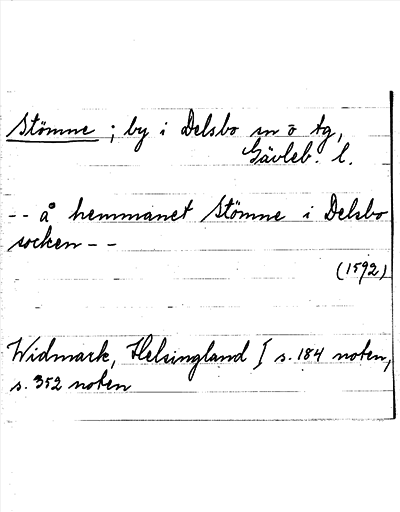 Stömne ; by i Delsbo sn o tg,
Gävleb. l.
-- å hemmanet Stömne i Delsbo
socken --
(1592)
Widmark, Helsingland I s. 184 noten,
s. 352 noten